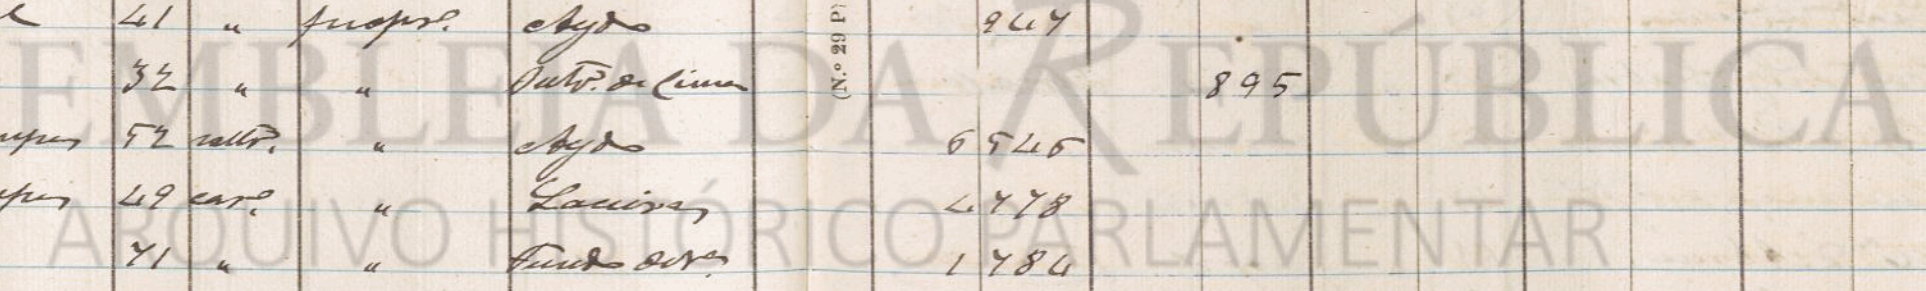 41 " propr.º Aydo 947
32 " " Outr.º de Cima 895
52 solt.º " Aydo 6 545
49 cas.º " 4 778
71 " " Fundo 1 784
(N.º 29 P
EMBLEIA DA REPÚBLICA
ARQUIVO HISTÓRICO PARLAMENTAR